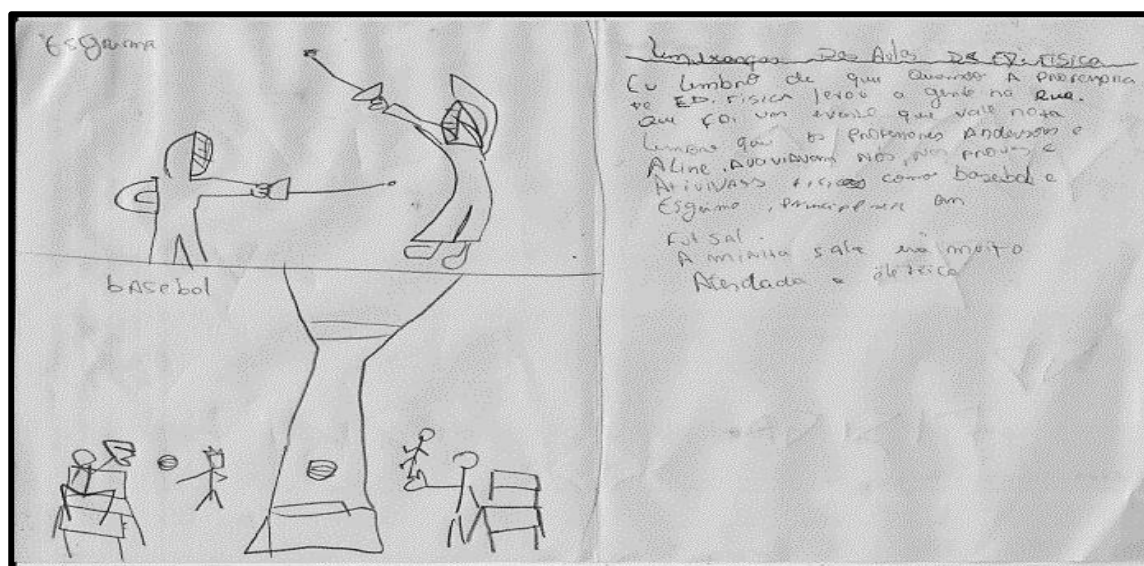 Esgrima
basebol
Lembranças Das Aulas DE ED. FISICA
Eu lembro de que Quando A professora
de ED. Fisica levou a gente na Rua.
Que foi um evento que vale nota
lembro que os professores Anderson e
Aline, AvaviAvam nós, nas provas e
como basebol e
Esgrima, em
Futsal.
A minha sala era muito
e